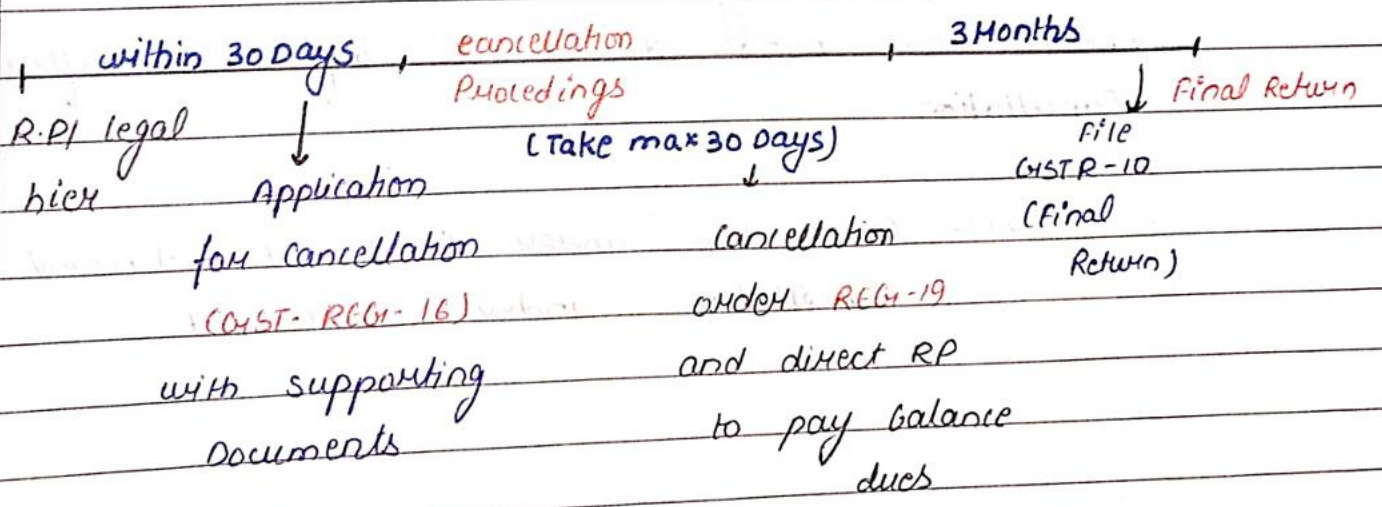 within 30 Days
cancellation
3 Months
Procedings
Final Return
R.P/ legal
hier
(Take max 30 Days)
Application
for cancellation
(GST- REG- 16)
with supporting
Documents
cancellation
order REG-19
and direct RP
to pay balance
dues
File
GSTR-10
(Final
Return)